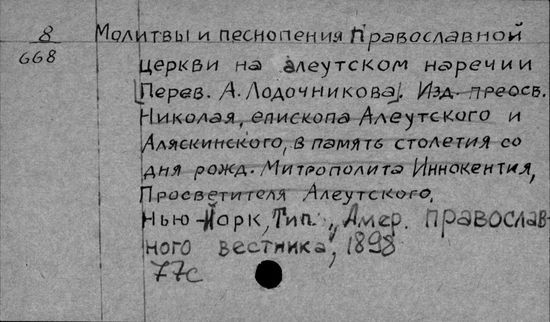 8 Молитвы и песнопения православной
668
церкви на алеутском наречии
[Перев. А. Лодочникова]. Изд. преосв.
Николая, епископа Алеутского и
Аляскинского, в память столетия со
дня рожд. Митрополита Иннокентия,
Просветителя Алеутского.
Нью-Йорк, Тип. „Амер. православ-
ного вестника", 1898
77с